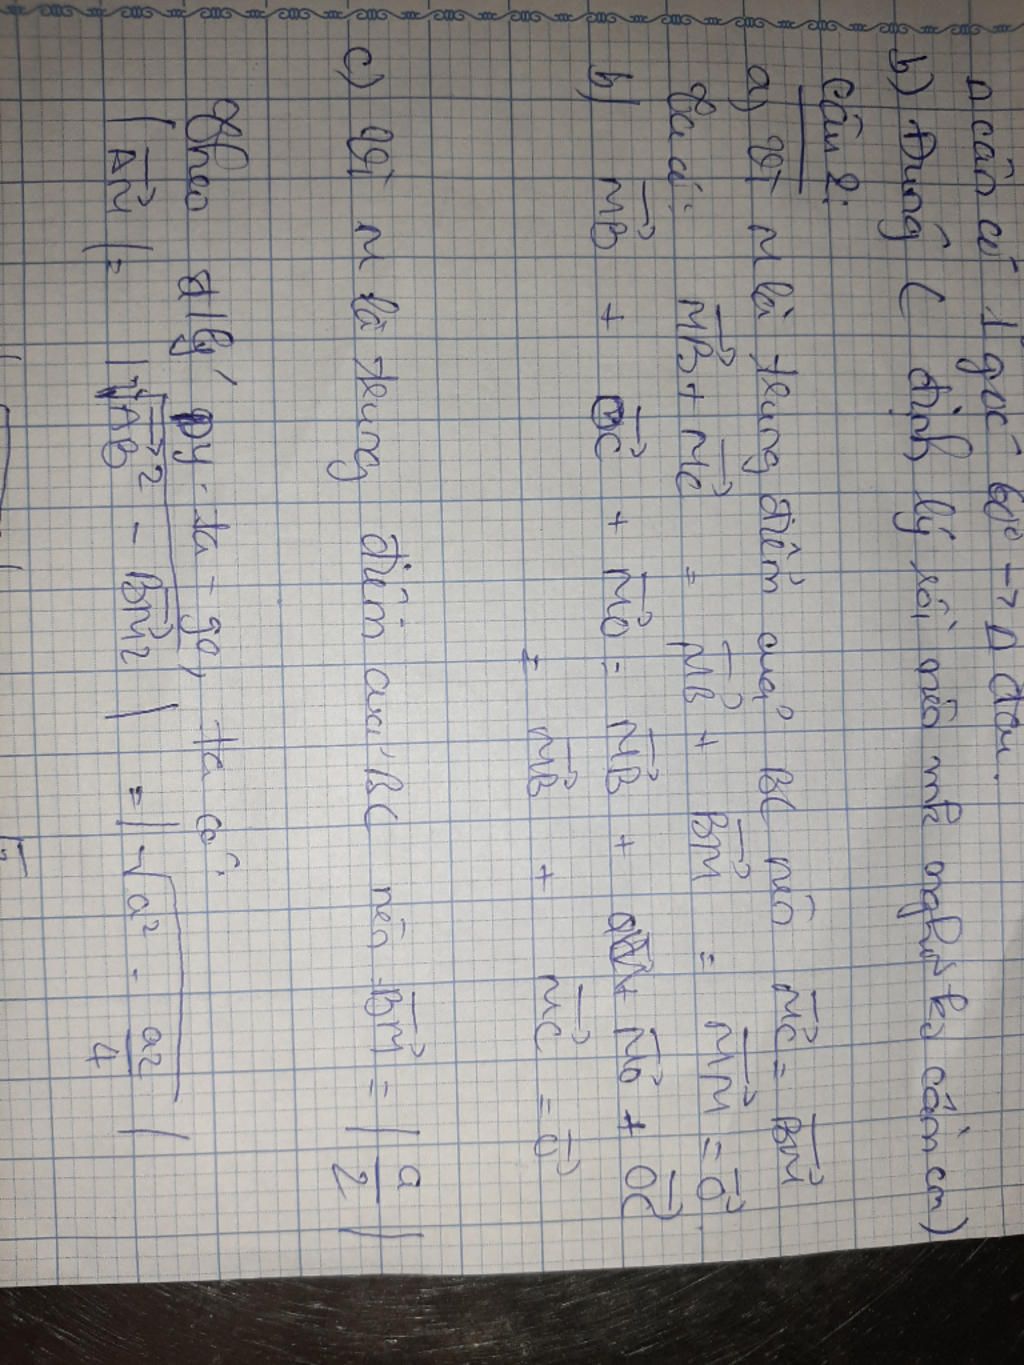 Δ cân có 1 góc 60° → Δ đều.
b) Đúng ( định lý rồi nên mk nghĩ ko cần cm)
Câu 2:
a) Vì M là trung điểm của BC nên MC⃗ = BM⃗
Ta có: MB⃗ + MC⃗ = MB⃗ + BM⃗ = MM⃗ = 0⃗
b) MB⃗ + OC⃗ + MO⃗ = MB⃗ + MO⃗ + OC⃗
= MB⃗ + MC⃗ = 0⃗
c) Vì M là trung điểm của BC nên BM⃗ = | a/2 |
Theo đ/lý py-ta-go, ta có:
| AM⃗ | = | √(AB⃗² - BM⃗²) | = | √(a² - a²/4) |